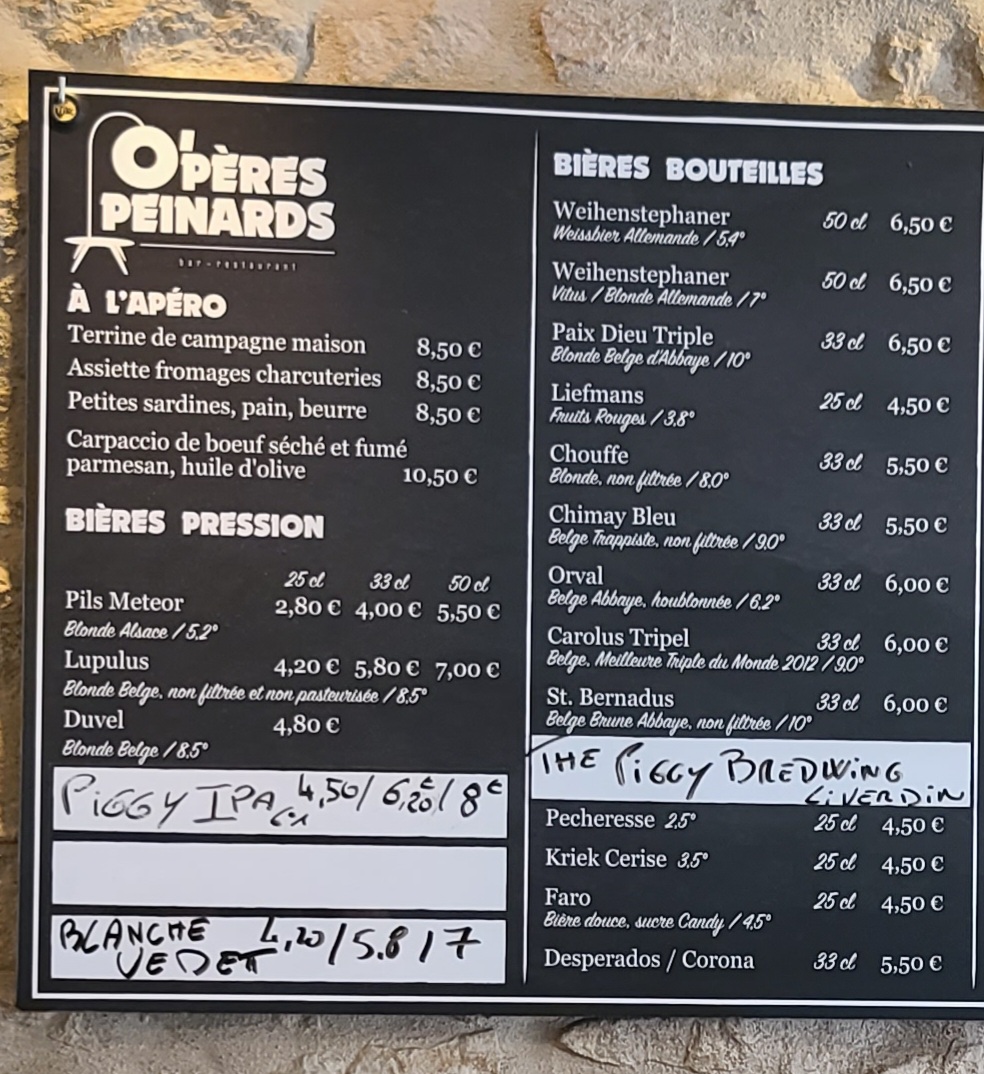 O'PÈRES
PEINARDS
bar-restaurant
À L'APÉRO
Terrine de campagne maison 8,50 €
Assiette fromages charcuteries 8,50 €
Petites sardines, pain, beurre 8,50 €
Carpaccio de boeuf séché et fumé
parmesan, huile d'olive 10,50 €
BIÈRES PRESSION
25 cl 33 cl 50 cl
Pils Meteor 2,80 € 4,00 € 5,50 €
Blonde Alsace / 5,2°
Lupulus 4,20 € 5,80 € 7,00 €
Blonde Belge, non filtrée et non pasteurisée / 8,5°
Duvel 4,80 €
Blonde Belge / 8,5°
PiGGY IPA 4,50/ 6,20€/ 8€
BLANCHE 4,20/5.8/7
VEDET
BIÈRES BOUTEILLES
Weihenstephaner 50 cl 6,50 €
Weissbier Allemande / 5,4°
Weihenstephaner 50 cl 6,50 €
Vitus / Blonde Allemande / 7°
Paix Dieu Triple 33 cl 6,50 €
Blonde Belge d'Abbaye / 10°
Liefmans 25 cl 4,50 €
Fruits Rouges / 3,8°
Chouffe 33 cl 5,50 €
Blonde, non filtrée / 8,0°
Chimay Bleu 33 cl 5,50 €
Belge Trappiste, non filtrée / 9,0°
Orval 33 cl 6,00 €
Belge Abbaye, houblonnée / 6,2°
Carolus Tripel 33 cl 6,00 €
Belge, Meilleure Triple du Monde 2012 / 9,0°
St. Bernadus 33 cl 6,00 €
Belge Brune Abbaye, non filtrée / 10°
THE PiGGY BREDWiNG
LiVERDiN
Pecheresse 2,5° 25 cl 4,50 €
Kriek Cerise 3,5° 25 cl 4,50 €
Faro 25 cl 4,50 €
Bière douce, sucre Candy / 4,5°
Desperados / Corona 33 cl 5,50 €